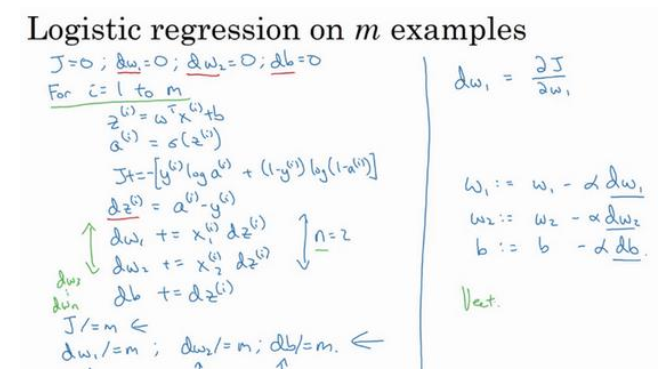 Logistic regression on m examples
J=0 ; dw₁=0 ; dw₂=0 ; db=0
For i=1 to m
z⁽ⁱ⁾ = wᵀx⁽ⁱ⁾+b
a⁽ⁱ⁾ = σ(z⁽ⁱ⁾)
J+=-[y⁽ⁱ⁾ log a⁽ⁱ⁾ + (1-y⁽ⁱ⁾) log(1-a⁽ⁱ⁾)]
dz⁽ⁱ⁾ = a⁽ⁱ⁾-y⁽ⁱ⁾
dw₁ += x₁⁽ⁱ⁾ dz⁽ⁱ⁾
dw₂ += x₂⁽ⁱ⁾ dz⁽ⁱ⁾
n=2
db += dz⁽ⁱ⁾
dw₃
⋮
dwₙ
J/=m ←
dw₁/=m ; dw₂/=m ; db/=m. ←
dw₁ = ∂J/∂w₁
w₁ := w₁ - α dw₁
w₂ := w₂ - α dw₂
b := b - α db.
Vect.